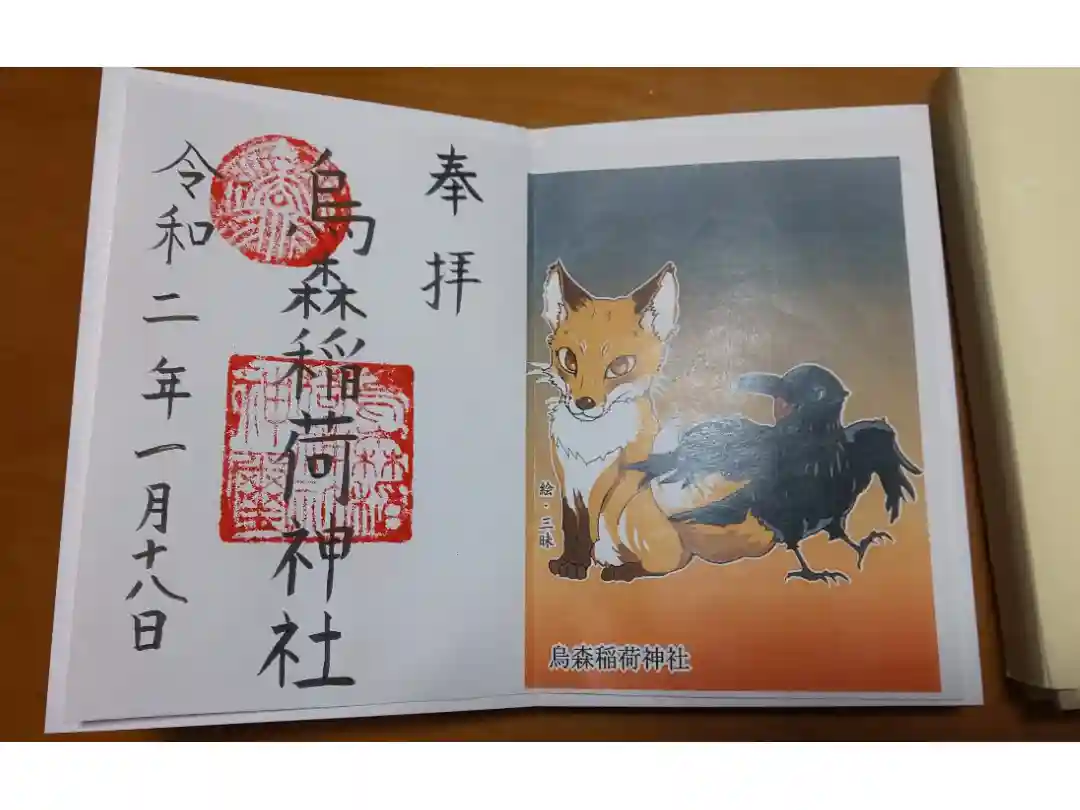 奉拝
烏森稲荷神社
令和二年一月十八日
絵・三昧
烏森稲荷神社